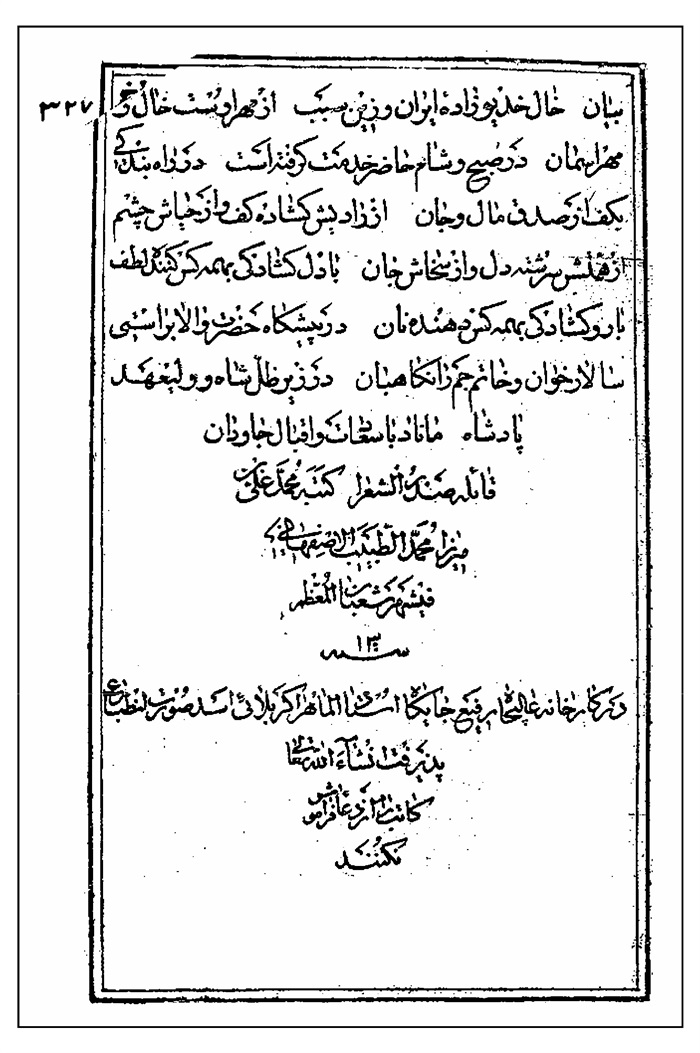 ۳۲۷
بیان خال خدیوزادهٔ ایران وزین سبب از مهر اوست خال رخ
مهر آسمان در صبح و شام حاضر خدمت گرفته است در راه بندگی
بکف از صدق مال و جان از رادیش گشاده کف و از حیاش چشم
سرشته دل و از سخاش جان با دل گشادگی بهمه کس کننده لطف
با رو گشادگی بهمه کس دهنده نان در پیشگاه حضرت والا براستی
سالار خوان و خاتم جم را نگاهبان در زیر ظلّ شاه و ولیعهد
پادشاه ماناد با سعادت و اقبال جاودان
قائله صدر الشعرا کتبه محمد علی بن
میرزا محمد الطبیب الاصفهانی
فی شهر شعبان المعظم
سنه ۱۳
در کارخانه عالیجاه رفیع جایگاه استاد الماهر کربلائی اسد صورت انطباع
پذیرفت انشآء الله تعالی
کاتب را از دعا فراموش
نکنند